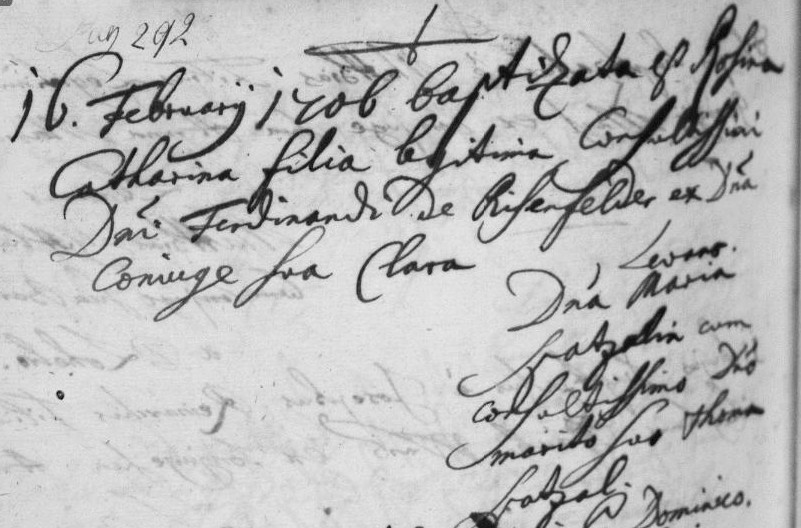 292
16. Februarij 1706 baptizata est Rosina
Catharina filia legitima Consultissimi
Dni Ferdinandi De Risenfelder ex Dna
Coniuge sua Clara
Levans.
Dna Maria
cum
consultissimo Dno
marito suo Thoma
Dominico.